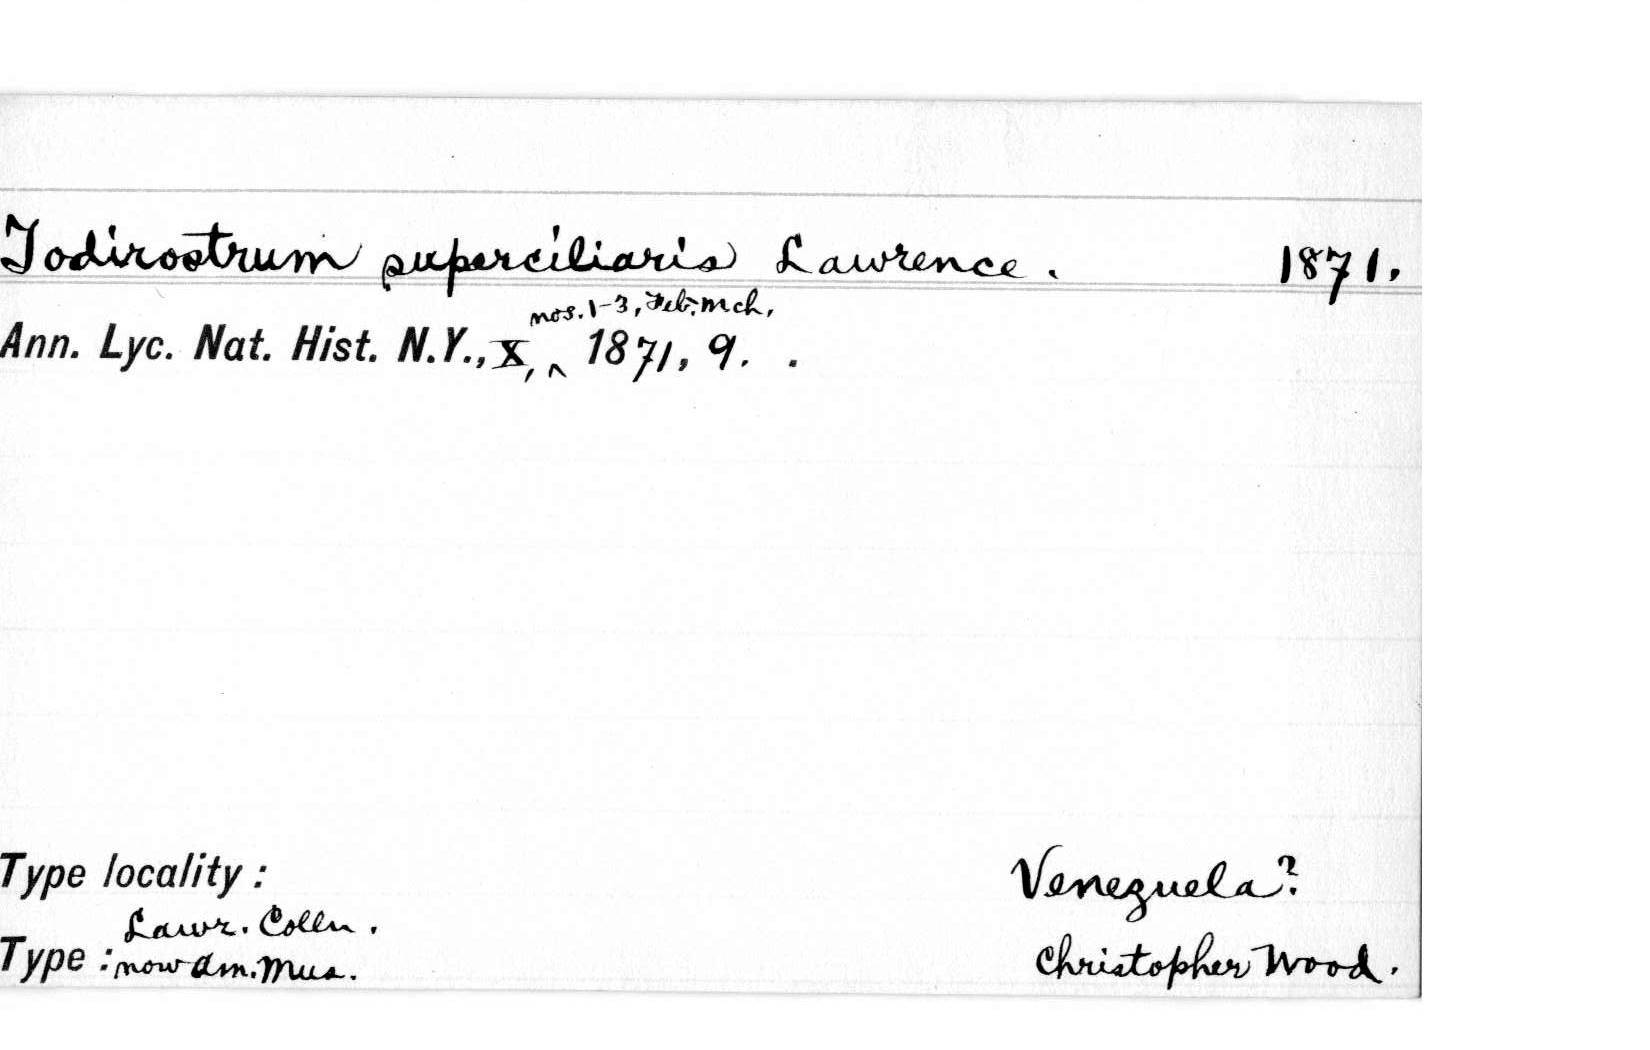 Todirostrum superciliaris Lawrence. 1871.
nos. 1-3, Feb.-Mch,
Ann. Lyc. Nat. Hist. N.Y., X, ^ 1871, 9. .
Type locality: Venezuela?
Lawr. Colln.
Type: now Am. Mus. Christopher Wood.